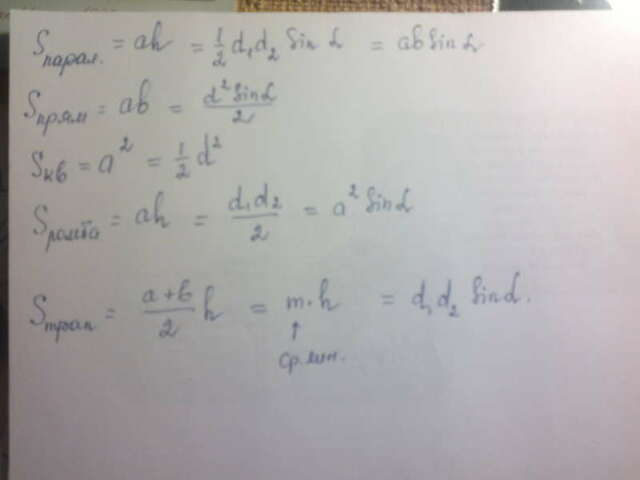 S парал. = ah = 1/2 d₁d₂ sin α = ab sin α
S прям = ab = d² sin α / 2
S кв = a² = 1/2 d²
S ромба = ah = d₁d₂ / 2 = a² sin α
S трап = a+b / 2 h = m·h = d₁d₂ sin α.
↑
ср. лин.